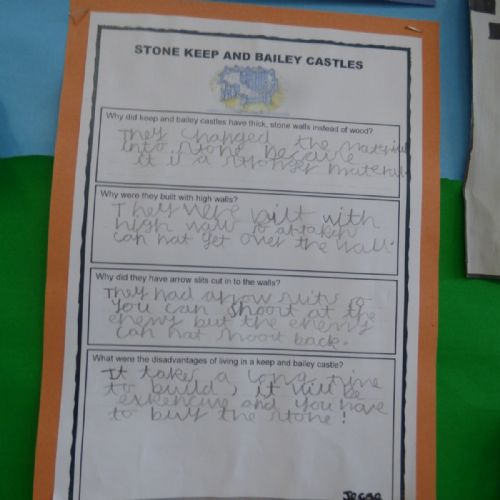 STONE KEEP AND BAILEY CASTLES
Why did keep and bailey castles have thick, stone walls instead of wood?
They changed the material
into stone because
it is a stronger material
Why were they built with high walls?
They were built with
high wall so
can not get over the wall.
Why did they have arrow slits cut in to the walls?
They had arrow so
you can shoot at the
enemy but the enemy
can not shoot back.
What were the disadvantages of living in a keep and bailey castle?
It takes a long time
to build, it will be
and you have
to buy the stone!